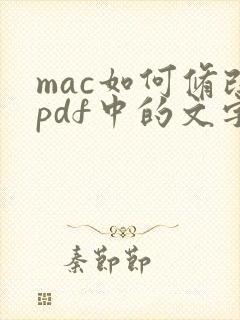 mac如何修改
pdf中的文字
秦節節